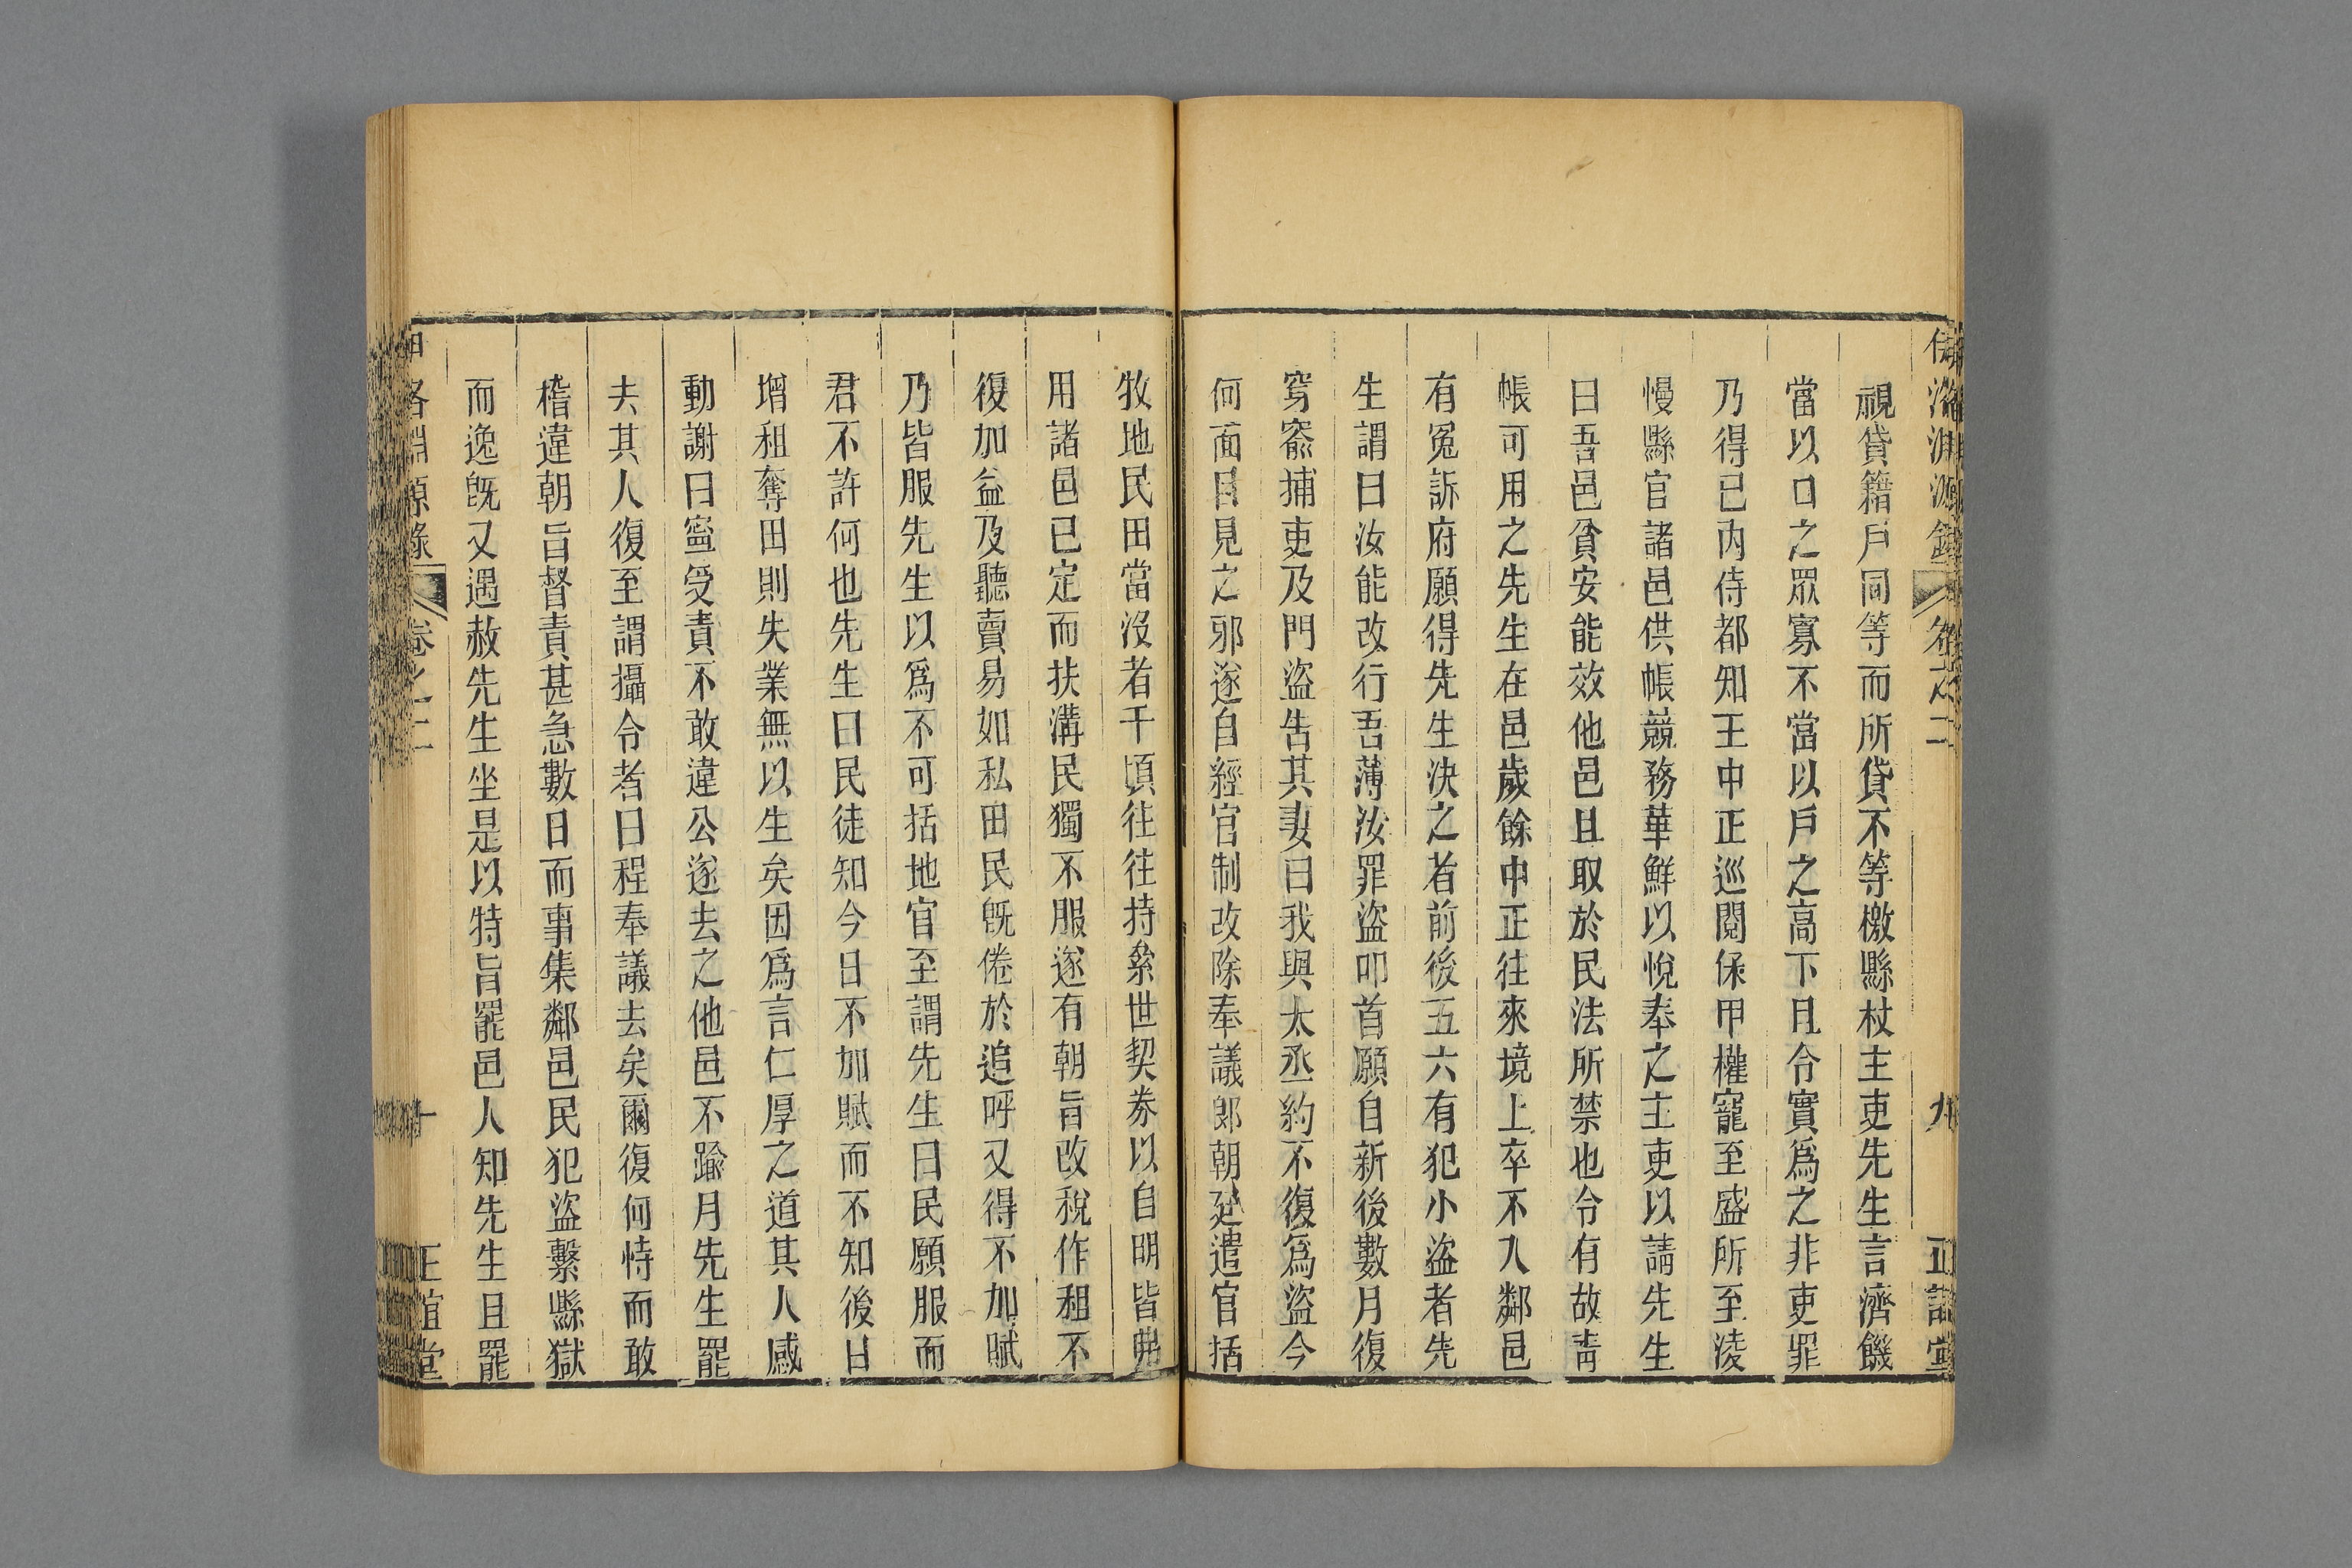 伊洛淵源錄 卷之二 九 正誼堂
視貸籍戶同等而所貸不等檄縣杖主吏先生言濟饑
當以口之眾寡不當以戶之高下且令實爲之非吏罪
乃得已內侍都知王中正巡閱保甲權寵至盛所至淩
慢縣官諸邑供帳競務華鮮以悅奉之主吏以請先生
曰吾邑貧安能效他邑且取於民法所禁也令有故靑
帳可用之先生在邑歲餘中正往來境上卒不入鄰邑
有冤訴府願得先生決之者前後五六有犯小盜者先
生謂曰汝能改行吾薄汝罪盜叩首願自新後數月復
穿窬捕吏及門盜告其妻曰我與太丞約不復爲盜今
何面目見之邪遂自經官制改除奉議郎朝廷遣官括
牧地民田當沒者千頃往往持絫世契券以自明皆弗
用諸邑已定而扶溝民獨不服遂有朝旨改稅作租不
復加益及聽賣易如私田民旣倦於追呼又得不加賦
乃皆服先生以爲不可括地官至謂先生曰民願服而
君不許何也先生曰民徒知今日不加賦而不知後日
增租奪田則失業無以生矣因爲言仁厚之道其人感
動謝曰寧受責不敢違公遂去之他邑不踰月先生罷
去其人復至謂攝令者曰程奉議去矣爾復何恃而敢
稽違朝旨督責甚急數日而事集鄰邑民犯盜繫縣獄
而逸旣又遇赦先生坐是以特旨罷邑人知先生且罷
洛淵源錄 卷之二 十 正誼堂